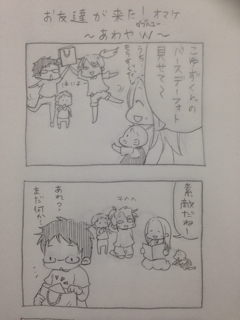 お友達が来た！オマケ
～あわやW～
バースデーフォト
見せて～
はいよ
素敵だねー
あれっ
まだ何か